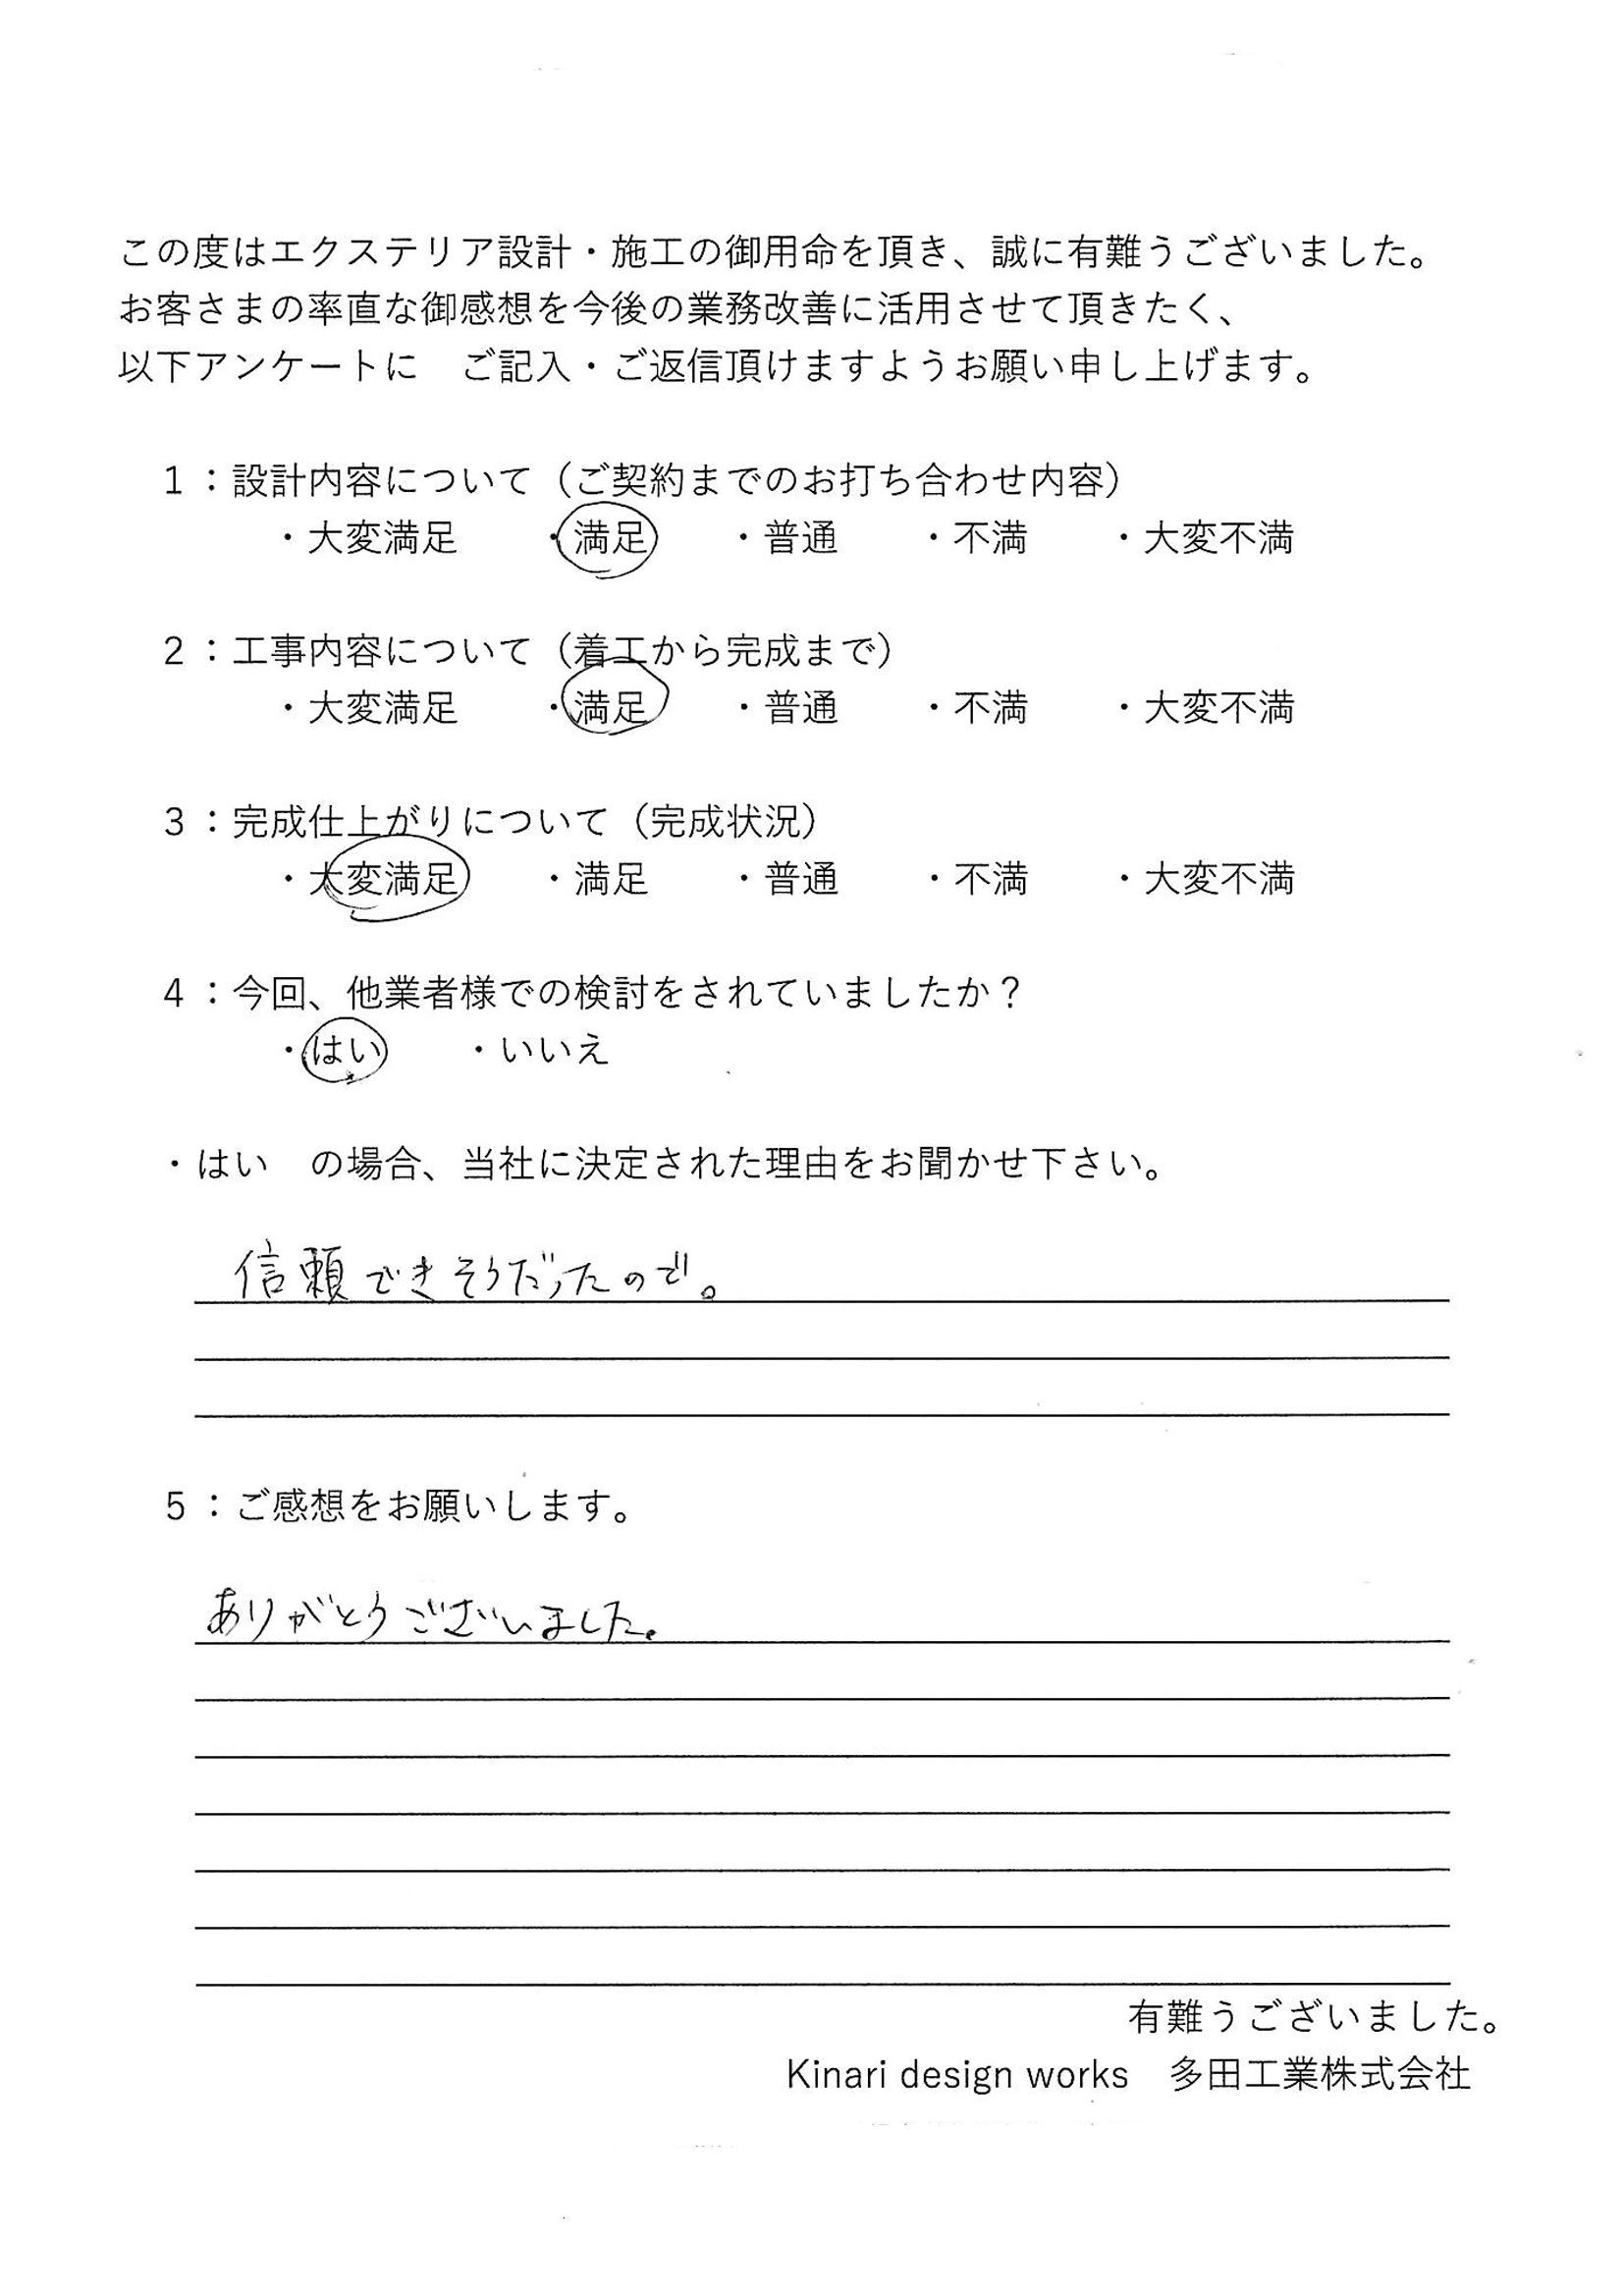 この度はエクステリア設計・施工の御用命を頂き、誠に有難うございました。
お客さまの率直な御感想を今後の業務改善に活用させて頂きたく、
以下アンケートに　ご記入・ご返信頂けますようお願い申し上げます。
1：設計内容について（ご契約までのお打ち合わせ内容）
・大変満足　・満足　・普通　・不満　・大変不満
2：工事内容について（着工から完成まで）
・大変満足　・満足　・普通　・不満　・大変不満
3：完成仕上がりについて（完成状況）
・大変満足　・満足　・普通　・不満　・大変不満
4：今回、他業者様での検討をされていましたか？
・はい　・いいえ
・はい　の場合、当社に決定された理由をお聞かせ下さい。
信頼できそうだったので。
5：ご感想をお願いします。
ありがとうございました。
有難うございました。
Kinari design works　多田工業株式会社